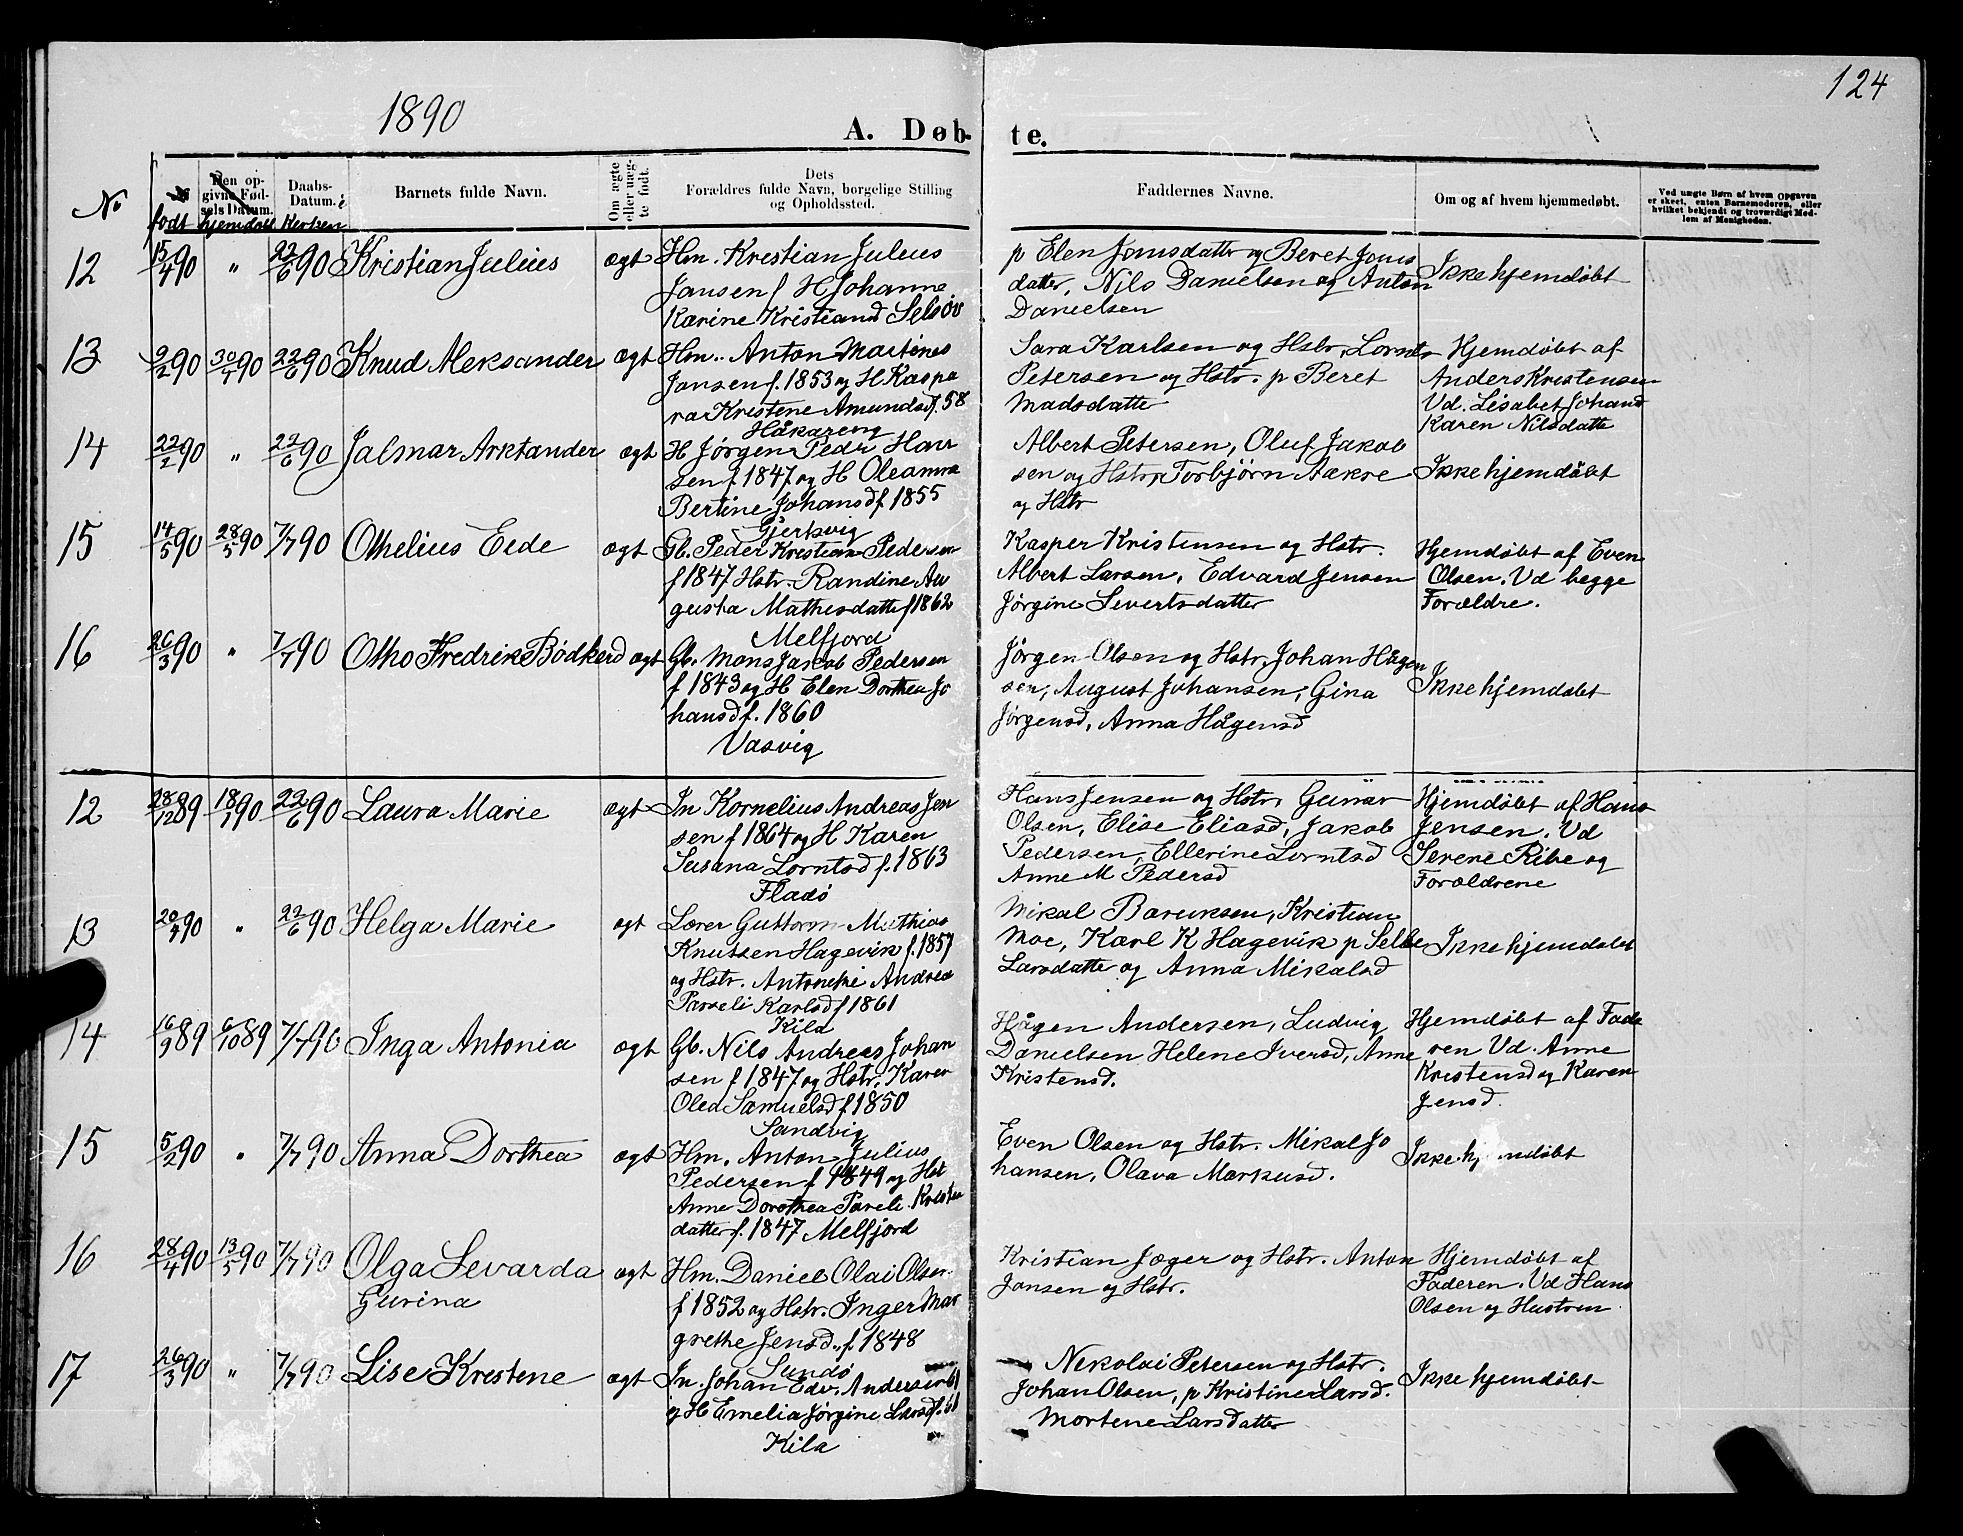 124
1890
A. Døb- te.
No
født
Den opgivne Fødsels Datum.
hjemdøbt
Daabs-Datum. i Kirken
Barnets fulde Navn.
Om ægte eller uægte født.
Dets Forældres fulde Navn, borgelige Stilling og Opholdssted.
Faddernes Navne.
Om og af hvem hjemmedøbt.
Ved uægte Børn af hvem Opgaven er skeet, enten Barnemoderen, eller hvilket bekjendt og troværdigt Medlem af Menigheden.
12 15/4 90 " 22/6 90 Kristian Julius ægt Hm. Kristian Julius
Jansen f H Johanne
Karine Kristiansd Selsøv
p Elen Jonsdatter og Beret Jons
datter, Nils Danielsen og Anton
Danielsen
Ikke hjemdøbt
13 2/2 90 30/4 90 22/6 90 Knud Aleksander ægt Hm. Anton Martines
Jansen f. 1853 og H Kaspa
ra Kristene Amundsd f. 58
Håkareng
Sara Karlsen og Hstr, Lornts
Petersen og Hstr. p Beret
Madsdatter
Hjemdøbt af
Anders Kristensen
Vd. Lisabet Johansd
Karen Nilsdatter
14 22/2 90 " 22/6 90 Jalmar Arktander ægt H Jørgen Pedr Han
sen f 1847 og H Oleanna
Bertine Johansd f. 1855
Gjersvig
Albert Petersen, Oluf Jakob
sen og Hstr, Torbjørn Aakre
og Hstr
Ikke hjemdøbt
15 14/5 90 28/5 90 7/7 90 Othelius Eede ægt Gb. Peder Kristian Pedersen
f 1847 Hstr. Randine Au
gusta Mathisdatter f 1862
Melfjord
Kasper Kristensen og Hstr.
Albert Larsen, Edvard Jensen
Jørgine Sivertsdatter
Hjemdøbt af Even
Olsen. Vd begge
Forældre.
16 26/3 90 " 7/7 90 Otho Fredrik Bødkerd ægt Gb. Mons Jakob Pedersen
f 1843 og H Elen Dorthea Jo
hansd f. 1860
Vasvig
Jørgen Olsen og Hstr, Johan Hågen
sen, August Johansen, Gina
Jørgensd, Anna Hågensd
Ikke hjemdøbt
12 28/12 89 18/1 90 22/6 90 Laura Marie ægt In Kornelius Andreas Jen
sen f 1864 og H Karen
Susana Lorntsd f. 1863
Fladø
Hans Jensen og Hstr, Gunar
Olsen, Elise Eliasd, Jakob
Pedersen, Ellerine Lorntsd
Anne M Pedersd
Hjemdøbt af Hans
Jensen. Vd
Serene Ribe og
Forældrene
13 20/4 90 " 22/6 90 Helga Marie ægt Lærer Guttorm Mathias
Knutsen Hagevik f. 1857
og Hstr. Antonette Andrea
Parseli Karlsd f 1861
Kila
Mikal Baruksen, Kristian
Moe, Karl K Hagevik p Selle
Larsdatter og Anna Mikalsd
Ikke hjemdøbt
14 16/9 89 6/10 89 7/7 90 Inga Antonia ægt Gb. Nils Andreas Johan
sen f 1847 og Hstr. Karen
Olea Samuelsd f 1850
Sandvig
Hågen Andersen, Ludvig
Danielsen Helene Iversd, Anne
Kristensd.
Hjemdøbt af Fade
ren Vd. Anne
Kristensd og Karen
Jensd.
15 5/2 90 " 7/7 90 Anna Dorthea ægt Hm. Anton Julius
Pedersen f 1849 og Hst
Anne Dorothea Pareli Kristen
datter f. 1847 Melfjord
Even Olsen og Hstr. Mikal Jo
hansen, Olava Markusd.
Ikke hjemdøbt
16 28/4 90 13/5 90 7/7 90 Olga Sevarda
Gurina
ægt Hm. Daniel Olai Olsen
f 1852 og Hstr. Inger Mar
grethe Jensd., f. 1848
Sundø
Kristian Jæger og Hstr. Anton
Jansen og Hstr.
Hjemdøbt af
Faderen. Vd Hans
Olsen og Hustrun
17 26/3 90 " 7/7 90 Lise Krestene ægt In. Johan Edv. Andersen 61
og H Emelia Jørgine Larsd f. 66
Kila
Nekolai Petersen og Hstr.
Johan Olsen, p Kristine Larsd.
Mortene Larsdatter
Ikke hjemdøbt